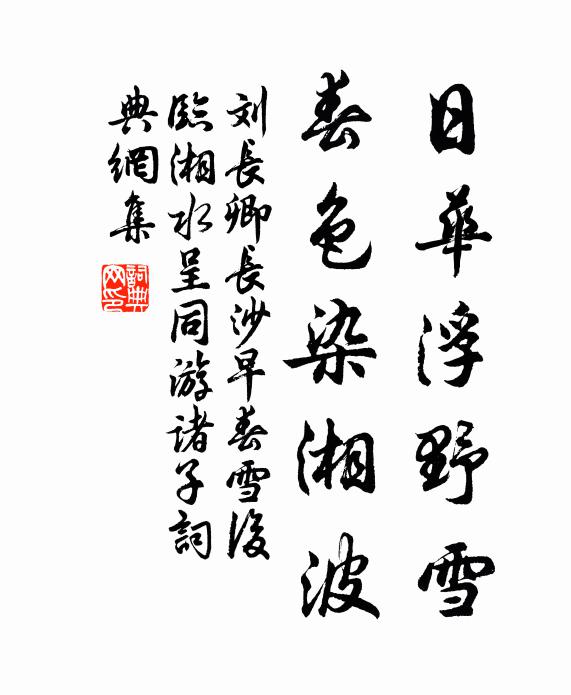 日華浮野雪
春色染湘波
刘長卿長沙早春雪後
臨湘水呈同游諸子詞
典網集
詞典
网印